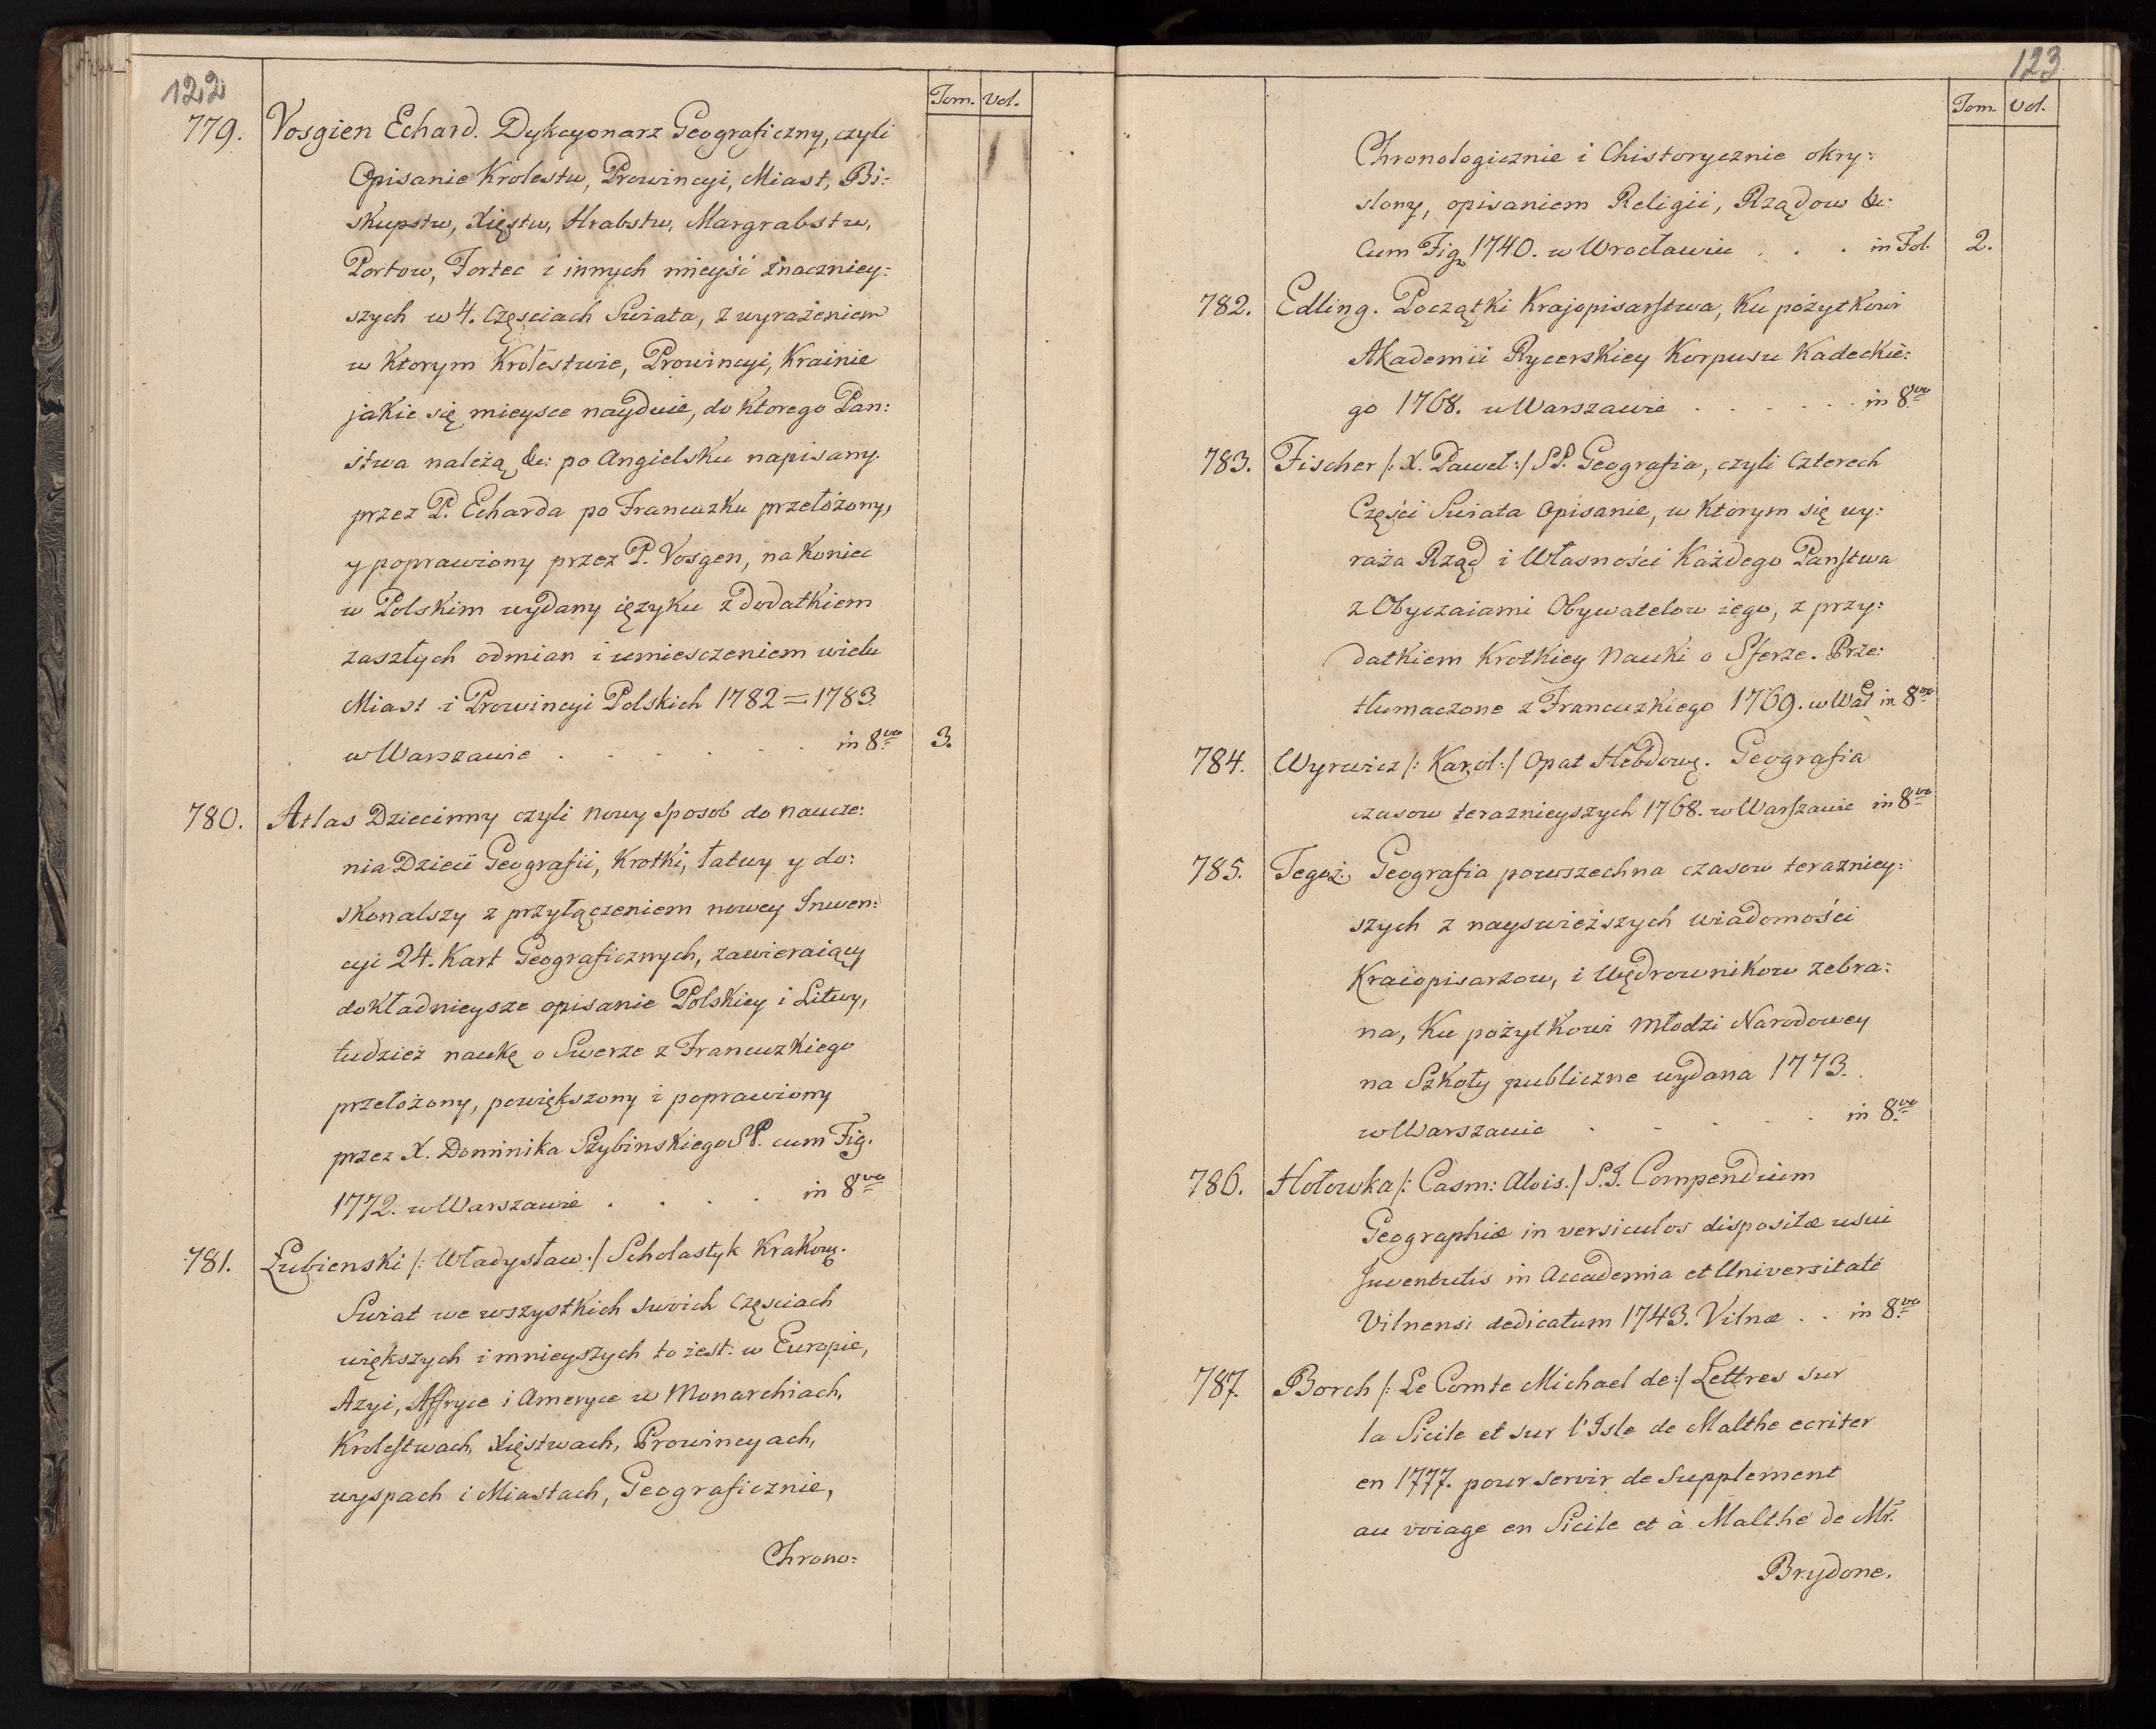 122
Tom. Vol.
779. Vosgien Echard. Dykcyonarz Geograficzny, czyli
Opisanie Krolestw, Prowincyi, Miast, Bi:
skupstw, Xięstw, Hrabstw, Margrabstw,
Portow, Fortec i innych mieyść znaczniey:
szych w 4. Częsciach Swiata, z wyrażeniem
w Ktorym Krolestwie, Prowincyi, Krainie
jakie się mieysce nayduie, do Ktorego Pan:
stwa należą &c: po Angielsku napisany.
przez P. Echarda po Francuzku przełożony,
y poprawiony przez P. Vosgen, na Koniec
w Polskim wydany ięzyku z dodatkiem
zaszłych odmian i umiesczeniem wielu
Miast i Prowincyi Polskich 1782=1783.
w Warszawie . . . . . . in 8vo 3.
780. Atlas Dziecinny czyli nowy sposob do naucze:
nia Dzieci Geografii, Krotki, łatwy y do:
skonalszy z przyłączeniem nowey Inwen:
cyi 24. Kart Geograficznych, zawieraiący
dokładnieysze opisanie Polskiey i Litwy,
tudzież naukę o Swerze z Francuzkiego
przełożony, powiększony i poprawiony
przez X. Dominika Szybinskiego S.P. cum Fig.
1772. w Warszawie . . . . in 8vo
781. Łubienski /: Władysław :/ Scholastyk Krakow.
Swiat we wszystkich swoich częsciach
większych i mnieyszych to iest: w Europie,
Azyi, Affryce i Ameryce w Monarchiach,
Krolestwach, Xięstwach, Prowincyach,
wyspach i Miastach, Geograficznie,
Chrono:
123
Tom. Vol.
Chronologicznie i Chistorycznie okry:
slony, opisaniem Religii, Rządow &c:
Cum Fig. 1740. w Wrocławiu . . . in Fol. 2.
782. Edling. Początki Krajopisarstwa, Ku pożytkowi
Akademii Rycerskiey Korpusu Kadeckie:
go 1768. w Warszawie . . . . . in 8vo
783. Fischer /: X. Paweł :/ S.P. Geografia, czyli czterech
Części Swiata Opisanie, w Ktorym się wy:
raża Rząd i Własności Każdego Panstwa
z Obyczaiami Obywatelow iego, z przy:
datkiem Krotkiey Nauki o Sferze. Prze:
tłumaczone z Francuzkiego 1769. w Wał in 8vo
784. Wyrwicz /: Karol :/ Opat Hebdow. Geografia
czasow teraznieyszych 1768. w Warszawie in 8vo
785. Tegoż. Geografia powszechna czasow terazniey:
szych z nayswieższych wiadomości
Kraiopisarzow, i Wędrownikow zebra:
na, Ku pożytkowi Młodzi Narodowey
na Szkoły publiczne wydana 1773.
w Warszawie . . . . in 8vo
786. Hołowka /: Casm: Alois. / S.I. Compendium
Geographiæ in versiculos dispositæ usui
Juventutis in Accademia et Universitate
Vilnensi dedicatum 1743. Vilnæ . . in 8vo
787. Borch /: Le Comte Michael de :/ Lettres sur
la Sicile et sur l'Isle de Malthe ecriter
en 1777. pour servir de Supplement
au voiage en Sicile et à Malthe de Mr.
Brydone.